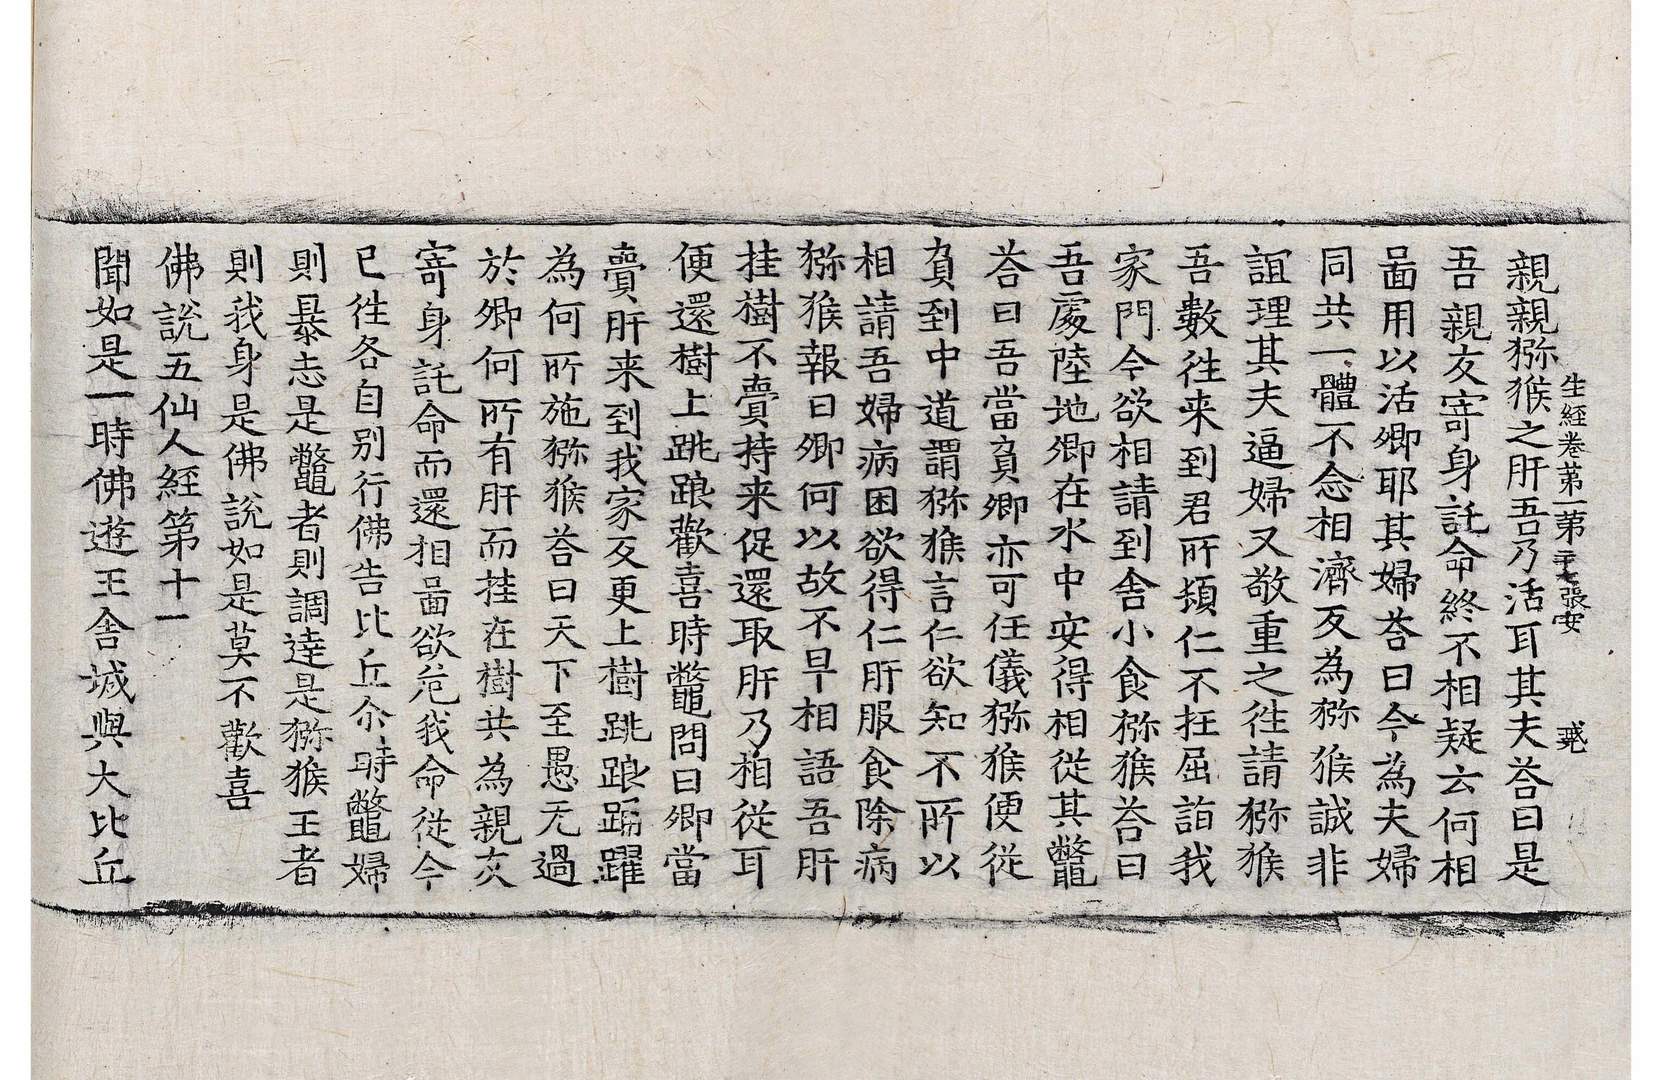 生經卷第一第二十七張安 玼
親親獼猴之肝吾乃活耳其夫荅曰是
吾親友寄身託命終不相疑云何相
啚用以活卿耶其婦荅曰今為夫婦
同共一體不念相濟反為獼猴誠非
誼理其夫逼婦又敬重之往請獼猴
吾數往来到君所頓仁不抂屈詣我
家門今欲相請到舍小食獼猴荅曰
吾處陸地卿在水中安得相從其鼈
荅曰吾當負卿亦可任儀獼猴便從
負到中道謂獼猴言仁欲知不所以
相請吾婦病困欲得仁肝服食除病
獼猴報曰卿何以故不早相語吾肝
挂樹不賷持来促還取肝乃相從耳
便還樹上跳踉歡喜時鼈問曰卿當
賷肝来到我家反更上樹跳踉踊躍
為何所施獼猴荅曰天下至愚无過
於卿何所有肝而挂在樹共為親友
寄身託命而還相啚欲危我命從今
已往各自別行佛告比丘尒時鼈婦
則暴志是鼈者則調達是獼猴王者
則我身是佛說如是莫不歡喜
佛說五仙人經第十一
聞如是一時佛遊王舍城與大比丘